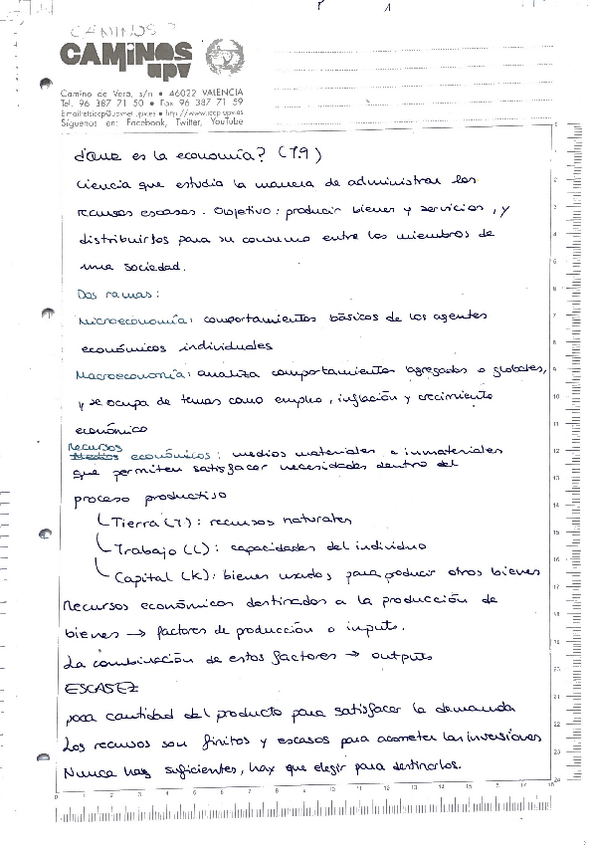 CAMINOS
CAMINOS
upv
Camino de Vera, s/n • 46022 VALENCIA
Tel. 96 387 71 50 • Fax 96 387 71 59
Síguenos en: Facebook, Twitter, YouTube
¿Que es la economía? (T.9)
Ciencia que estudia la manera de administrar los
recursos escasos. Objetivo: producir bienes y servicios, y
distribuirlos para su consumo entre los miembros de
una sociedad.
Dos ramas:
Microeconomía: comportamientos básicos de los agentes
económicos individuales
Macroeconomía: analiza comportamientos agregados o globales,
y se ocupa de temas como empleo, inflación y crecimiento
económico
Recursos
Medios económicos: medios materiales e inmateriales
que permiten satisfacer necesidades dentro del
proceso productivo
Tierra (T): recursos naturales
Trabajo (L): capacidades del individuo
Capital (K): bienes usados para producir otros bienes
Recursos económicos destinados a la producción de
bienes → factores de producción o inputs.
La combinación de estos factores → outputs
ESCASEZ
poca cantidad del producto para satisfacer la demanda
Los recursos son finitos y escasos para acometer las inversiones
Nunca hay suficientes, hay que elegir para destinarlos.